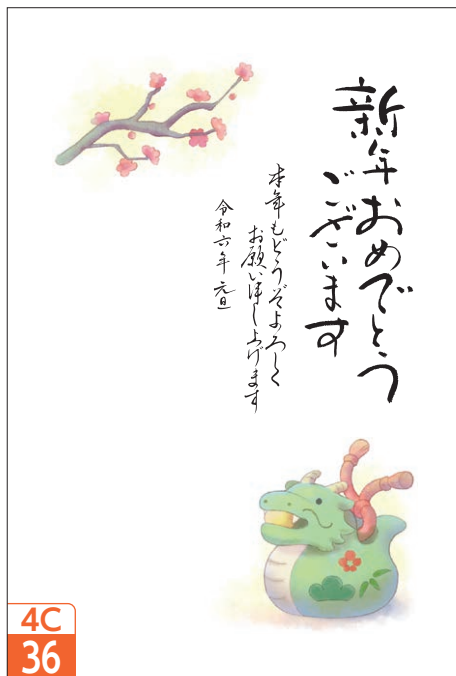 新年おめでとう
ございます
本年もどうぞよろしく
お願い申し上げます
令和六年 元旦
4C
36